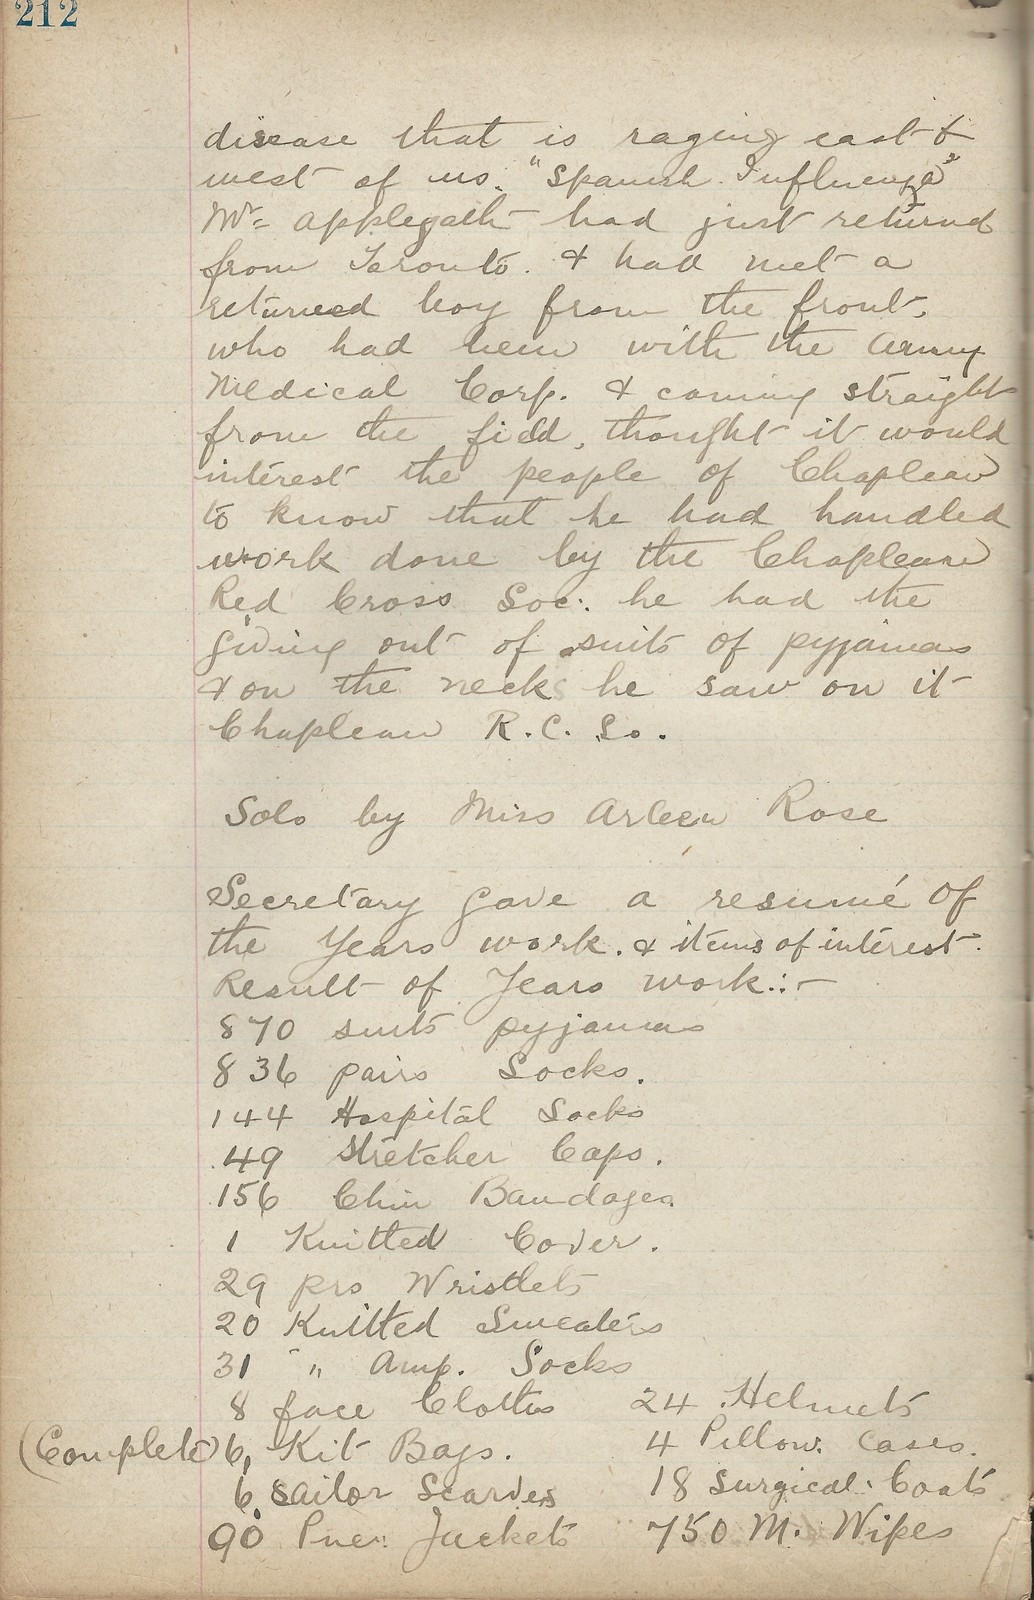 212
disease that is raging east &
west of us. "Spanish Influenza"
Mr. Applegath had just returned
from Toronto. & had met a
returned boy from the front,
who had been with the Army
Medical Corp. & coming straight
from the field, thought it would
interest the people of Chapleau
to know that he had handled
work done by the Chapleau
Red Cross Soc: he had the
giving out of suits of pyjamas
& on the necks he saw on it
Chapleau R.C. So.
Solo by Miss Arleen Rose
Secretary gave a resumé of
the Years work. & items of interest.
Result of Years work:-
870 suits pyjamas
836 pairs Socks.
144 Hospital Socks
49 Stretcher Caps.
156 Chin Bandages.
1 Knitted Cover.
29 prs Wristlets
20 Knitted Sweaters
31 " Amp. Socks
8 face Cloths 24 Helmets
(Complete) 6, Kit Bags. 4 Pillow. Cases.
6 Sailor Scarves 18 Surgical. Coats
90 Pneu: Jackets 750 M. Wipes